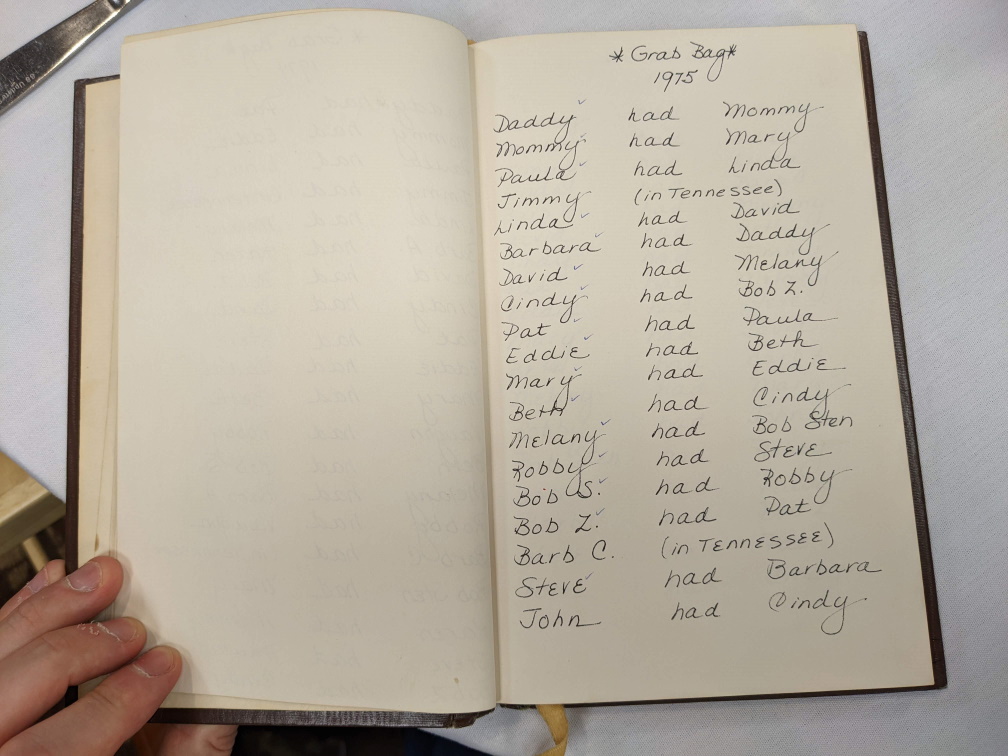 * Grab Bag *
1975
Daddy ✓ had Mommy
Mommy ✓ had Mary
Paula ✓ had Linda
Jimmy (in Tennessee)
Linda ✓ had David
Barbara ✓ had Daddy
David ✓ had Melany
Cindy ✓ had Bob Z.
Pat ✓ had Paula
Eddie ✓ had Beth
Mary ✓ had Eddie
Beth ✓ had Cindy
Melany ✓ had Bob Sten
Robby ✓ had Steve
Bob S. ✓ had Robby
Bob Z. ✓ had Pat
Barb C. (in Tennessee)
Steve ✓ had Barbara
John had Cindy